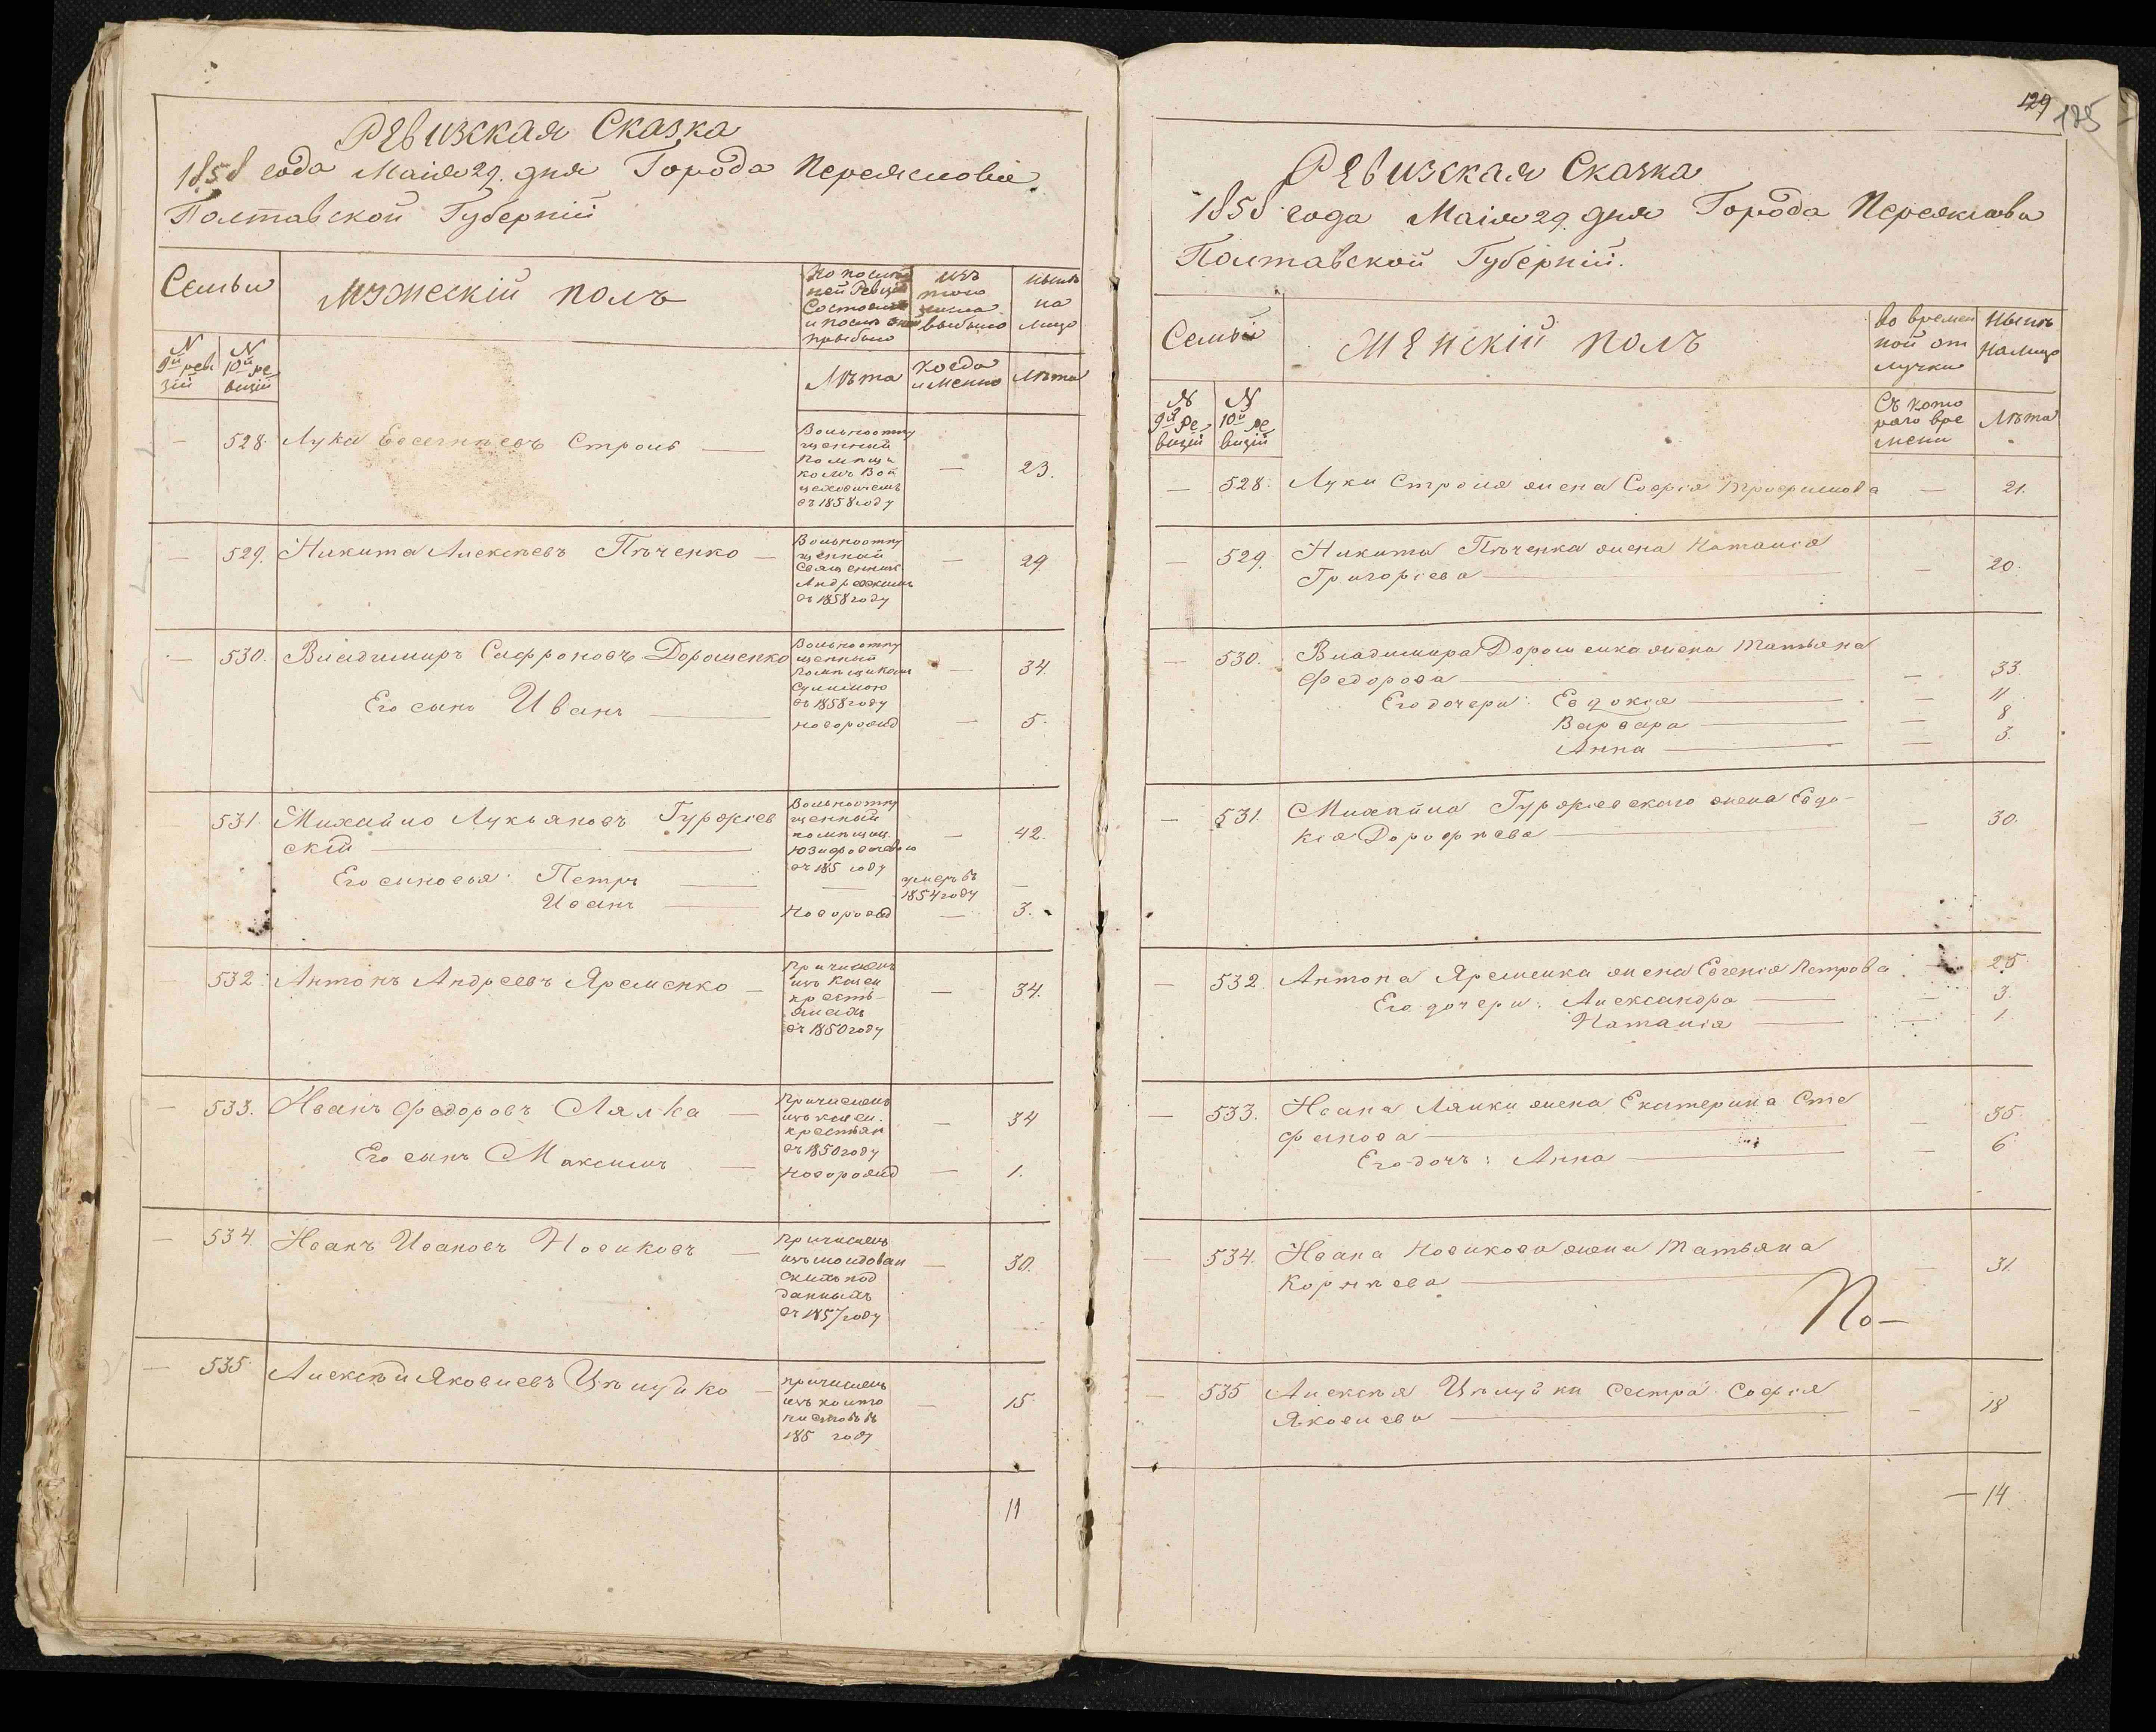 Ревизская Сказка
1858 года Маія 29. дня Города Переяслова
Полтавской Губерніи
Семьи
Мужескій полъ
По послѣд
ней Ревизіи
Состояло
и послѣ оной
прибыло
изъ
того
числа
выбыло
нынѣ
на
лицо
N 9й реви
зіи
N 10й ре
визіи
Лѣта
когда
именно
Лѣта
— 528. Лука Евсегнѣевъ Строй — — 23.
Вольноотпу
щенный
Помѣщи
комъ Вой
цеховичемъ
въ 1858 году
— 529. Никита Алексѣевъ Пѣченко — — 29
Вольноотпу
щенный
Священник
въ 1858 году
— 530. Владимиръ Сафроновъ Дорошенко — 34.
Вольноотпу
щенный
Помѣщикомъ
Сулимою
въ 1858 году
Его сынъ Иванъ — новорожд — 5.
531. Михайло Лукьяновъ Гурофіев
скій — — 42.
Вольноотпу
щенный
помѣщиц.
Юзефовичевою
въ 185 году
Его сыновья: Петръ — — умеръ въ
1854 году —
Иванъ — Новорожд — 3.
532. Антонъ Андреевъ Яременко — — 34.
Причислен
изъ Казен
кресть-
янъ
въ 1850 году
— 533. Иванъ Федоровъ Лялка — — 34
Причисленъ
изъ казен.
крестьян
въ 1850 году
Его сынъ Максимъ — Новорожд — 1.
— 534 Иванъ Ивановъ Новиковъ — — 30.
Причисленъ
изъ молдован
скихъ под
данныхъ
въ 1857 году
— 535. Алексѣй Яковлевъ Цѣлуйко — — 15
причисленъ
изъ
въ
185 году
11
129
125
Ревизская Сказка
1858 года Маія 29. дня Города Переяслова
Полтавской Губерніи.
Семьи
Женскій полъ
Во времен
ной от
лучки
Нынѣ
на лицо
N 9й Ре
визіи
N 10й ре
визіи
Съ кото
раго вре
мени
Лѣта
— 528. Луки Строя жена Софія Трофимова — 21.
— 529. Никиты Пѣченка жена Наталія
Григорієва — — 20.
— 530. Владимира Дорошенка жена Татьяна
Федорова — — 33.
Его дочери: Евдокія — — 11
Варвара — — 8
Анна — — 3.
— 531. Михайла Гурофіевского жена Евдо-
кія Дорофѣева — — 30.
— 532. Антона Яременка жена Евгенія Петрова — 25
Его дочери: Александра — — 3.
Наталія — — 1
— 533. Ивана Лялки жена Екатерина Сте
фанова — — 35.
Его дочъ: Анна — — 6
— 534. Ивана Новикова жена Татьяна
Корнѣева — — 31.
По —
— 535 Алексѣя Цѣлуйки сестра Софія
Яковлева — — 18
— 14.